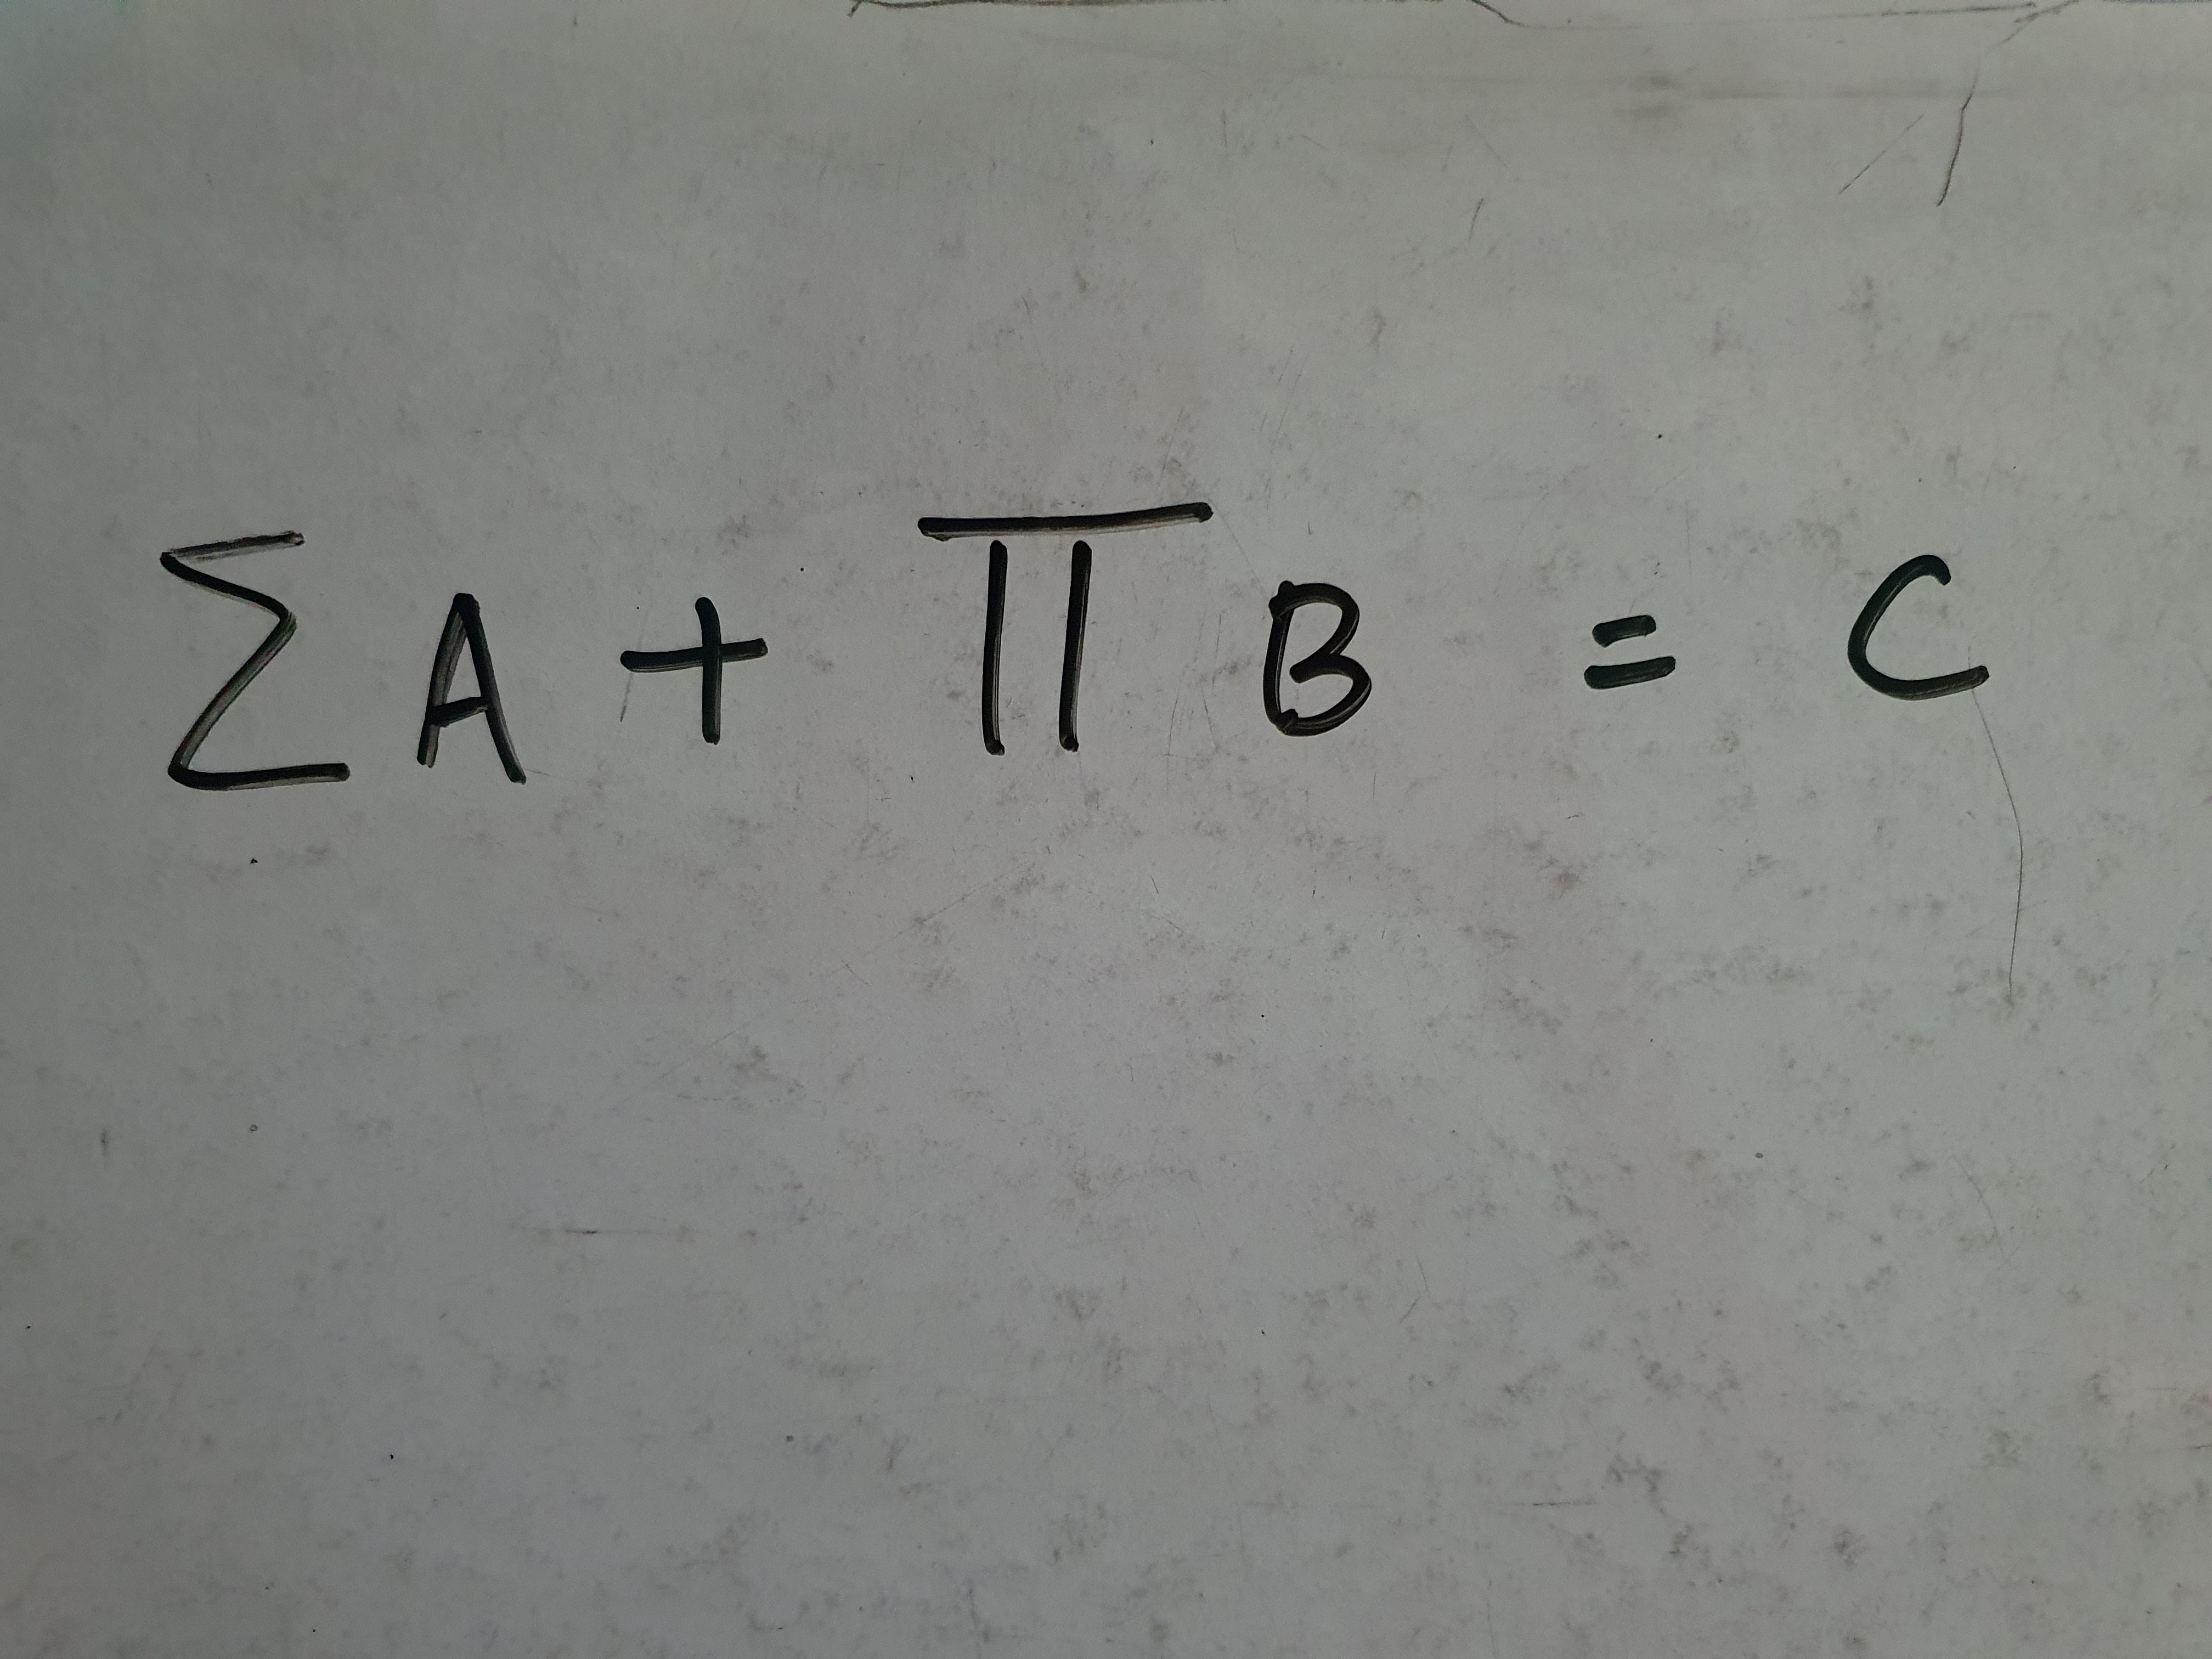 ∑A + ∏ B = C